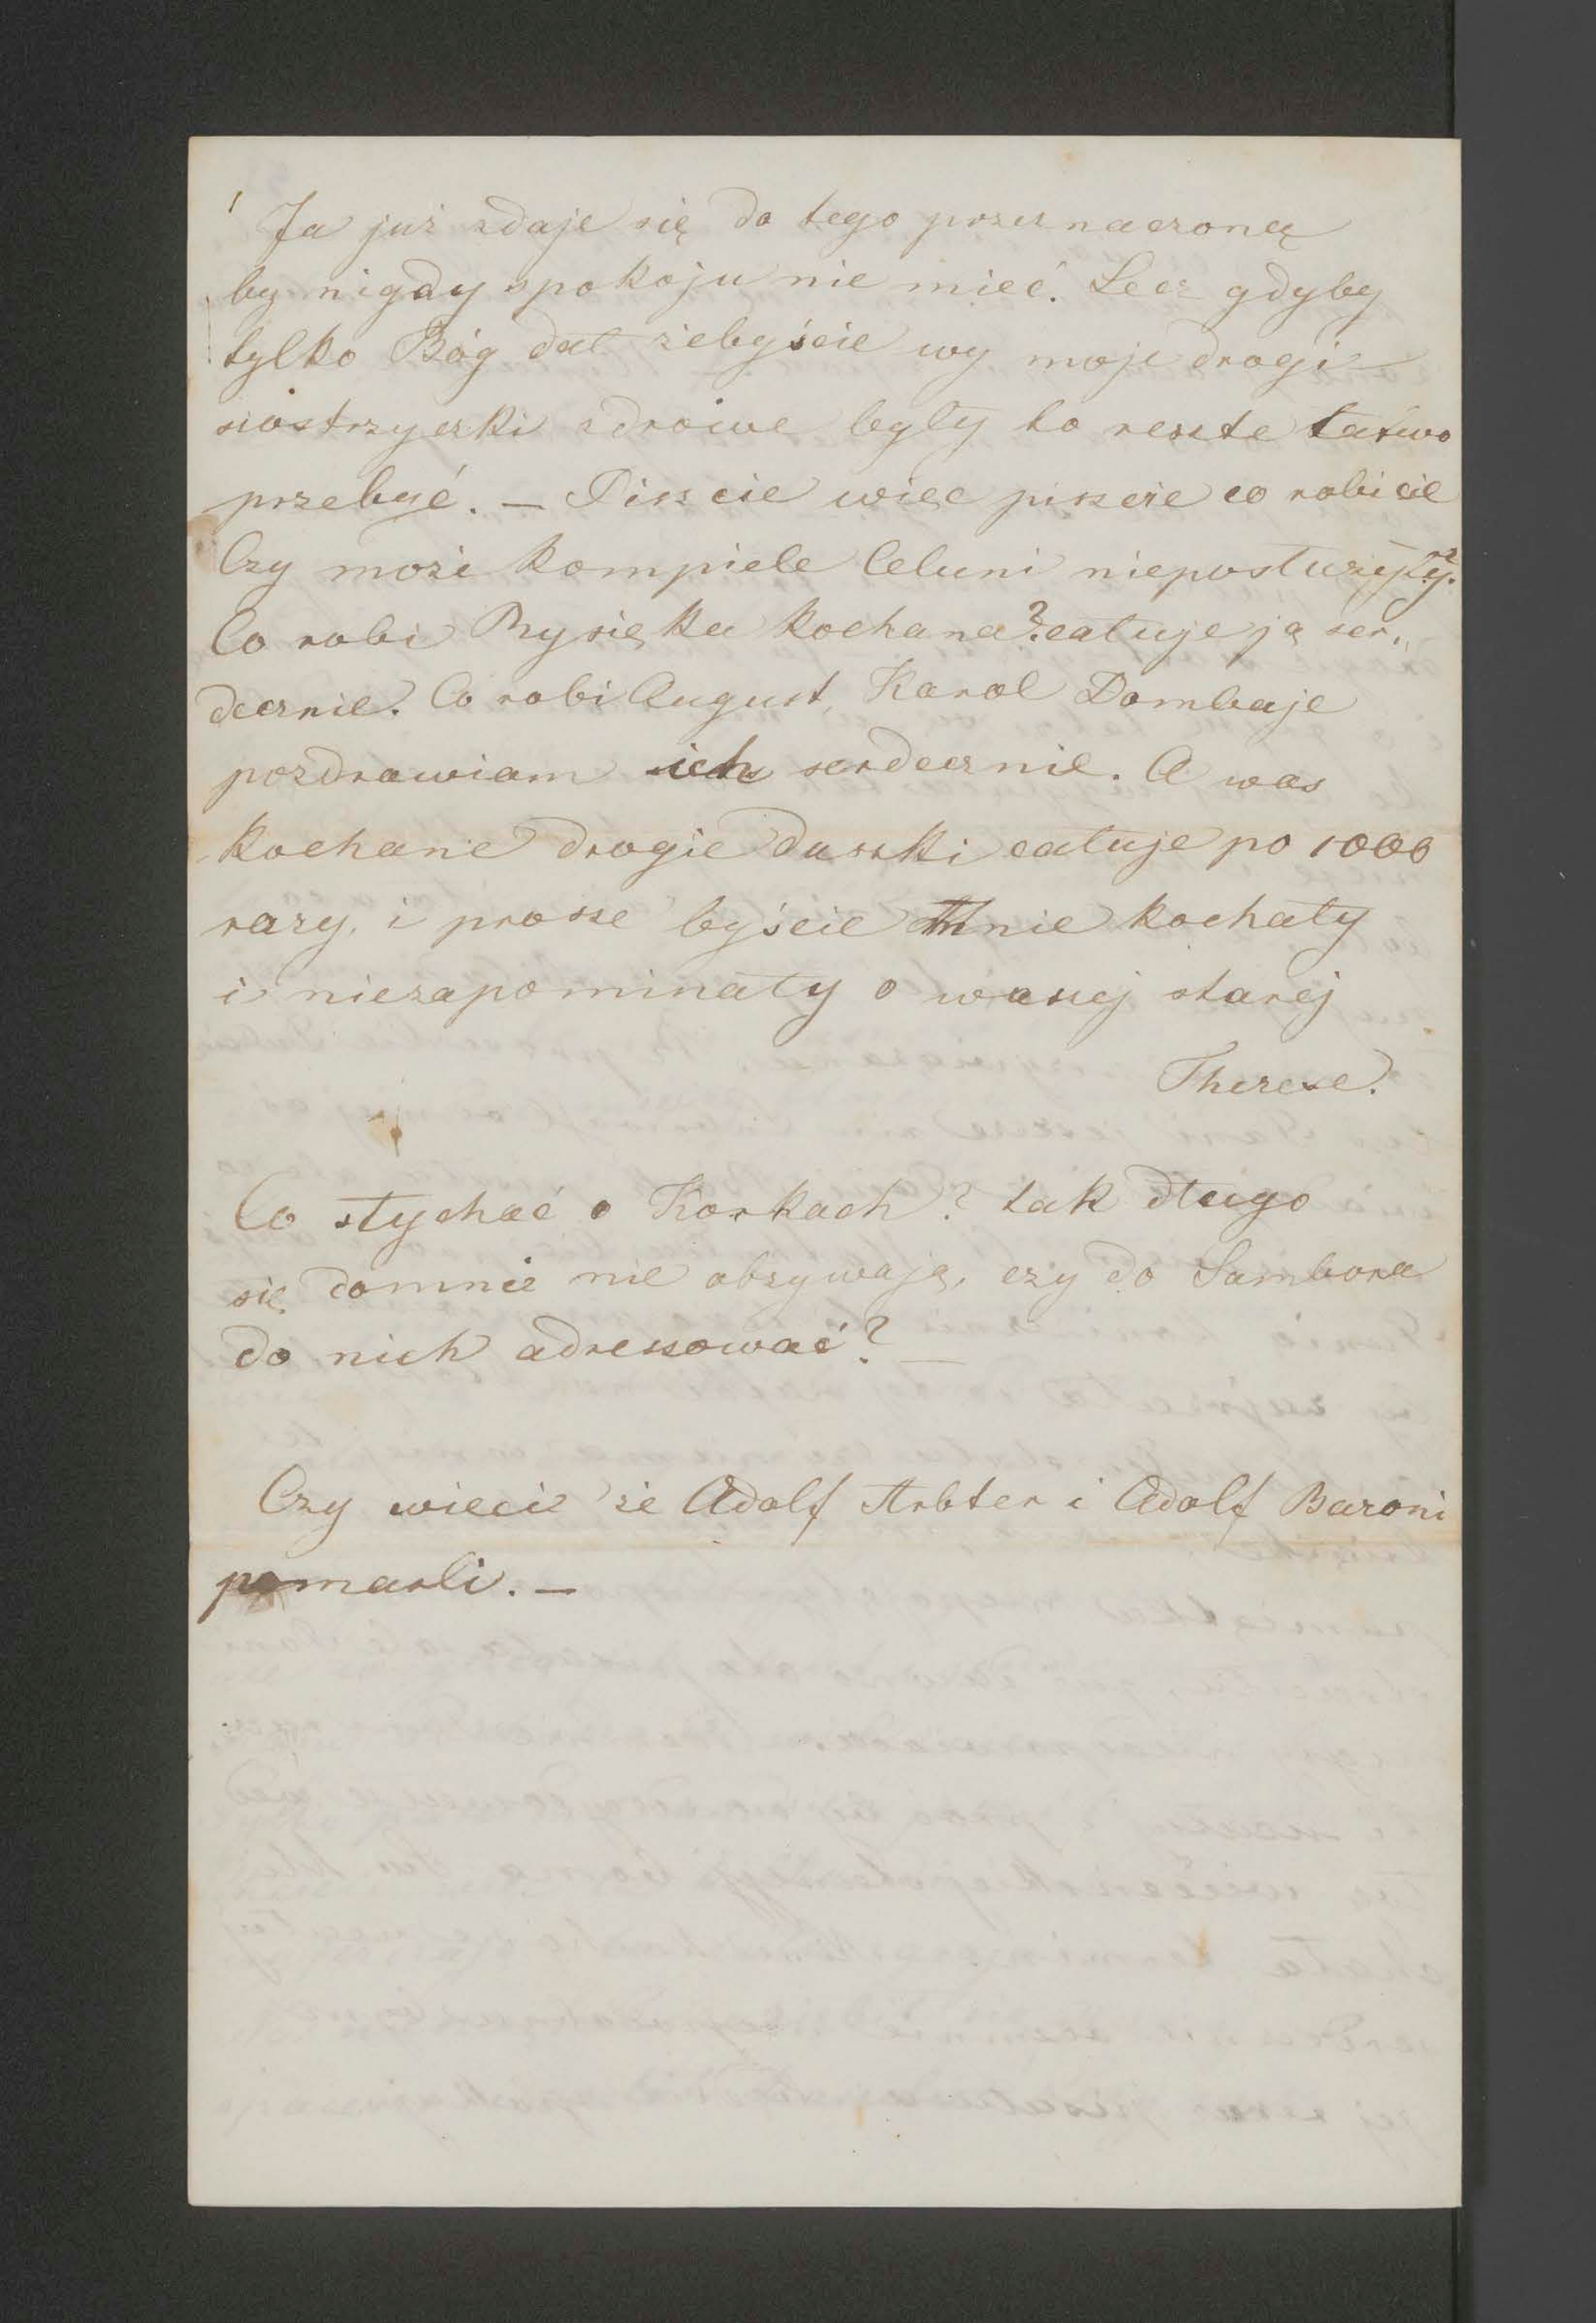 Ja już zdaje się do tego przeznaczoną
by nigdy spokoju nie mieć. Lecz gdyby
tylko Bóg dał żebyście wy moje drogie
siostrzyczki zdrowe były to reszte łatwo
przebyć. — Piszcie więc piszcie co robicie
Czy może kompiele Celuni nieposłużyły?
Co robi Rysieka kochana? całuje ją ser„
decznie. Co robi August, Karol Dombaje
pozdrawiam ich serdecznie. A was
kochane drogie duszki całuje po 1000
razy, i prosze byście mnie kochały
i niezapominały o waszej starej
Therese.
Co słychać o Korkach? tak długo
się domnie nie obzywają, czy do Sambora
do nich adressować? —
Czy wiecie że Adolf Arbter i Adolf Baroni
pomarli. —